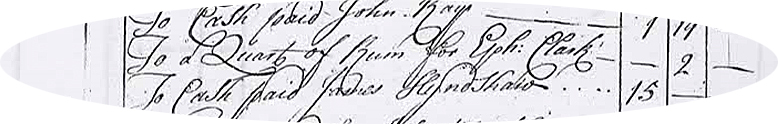 To Cash paid John Kay — 1 14
To a Quart of Rum for Eph: Clark — — 2 —
To Cash paid James Hyndshaw ..... 15 —